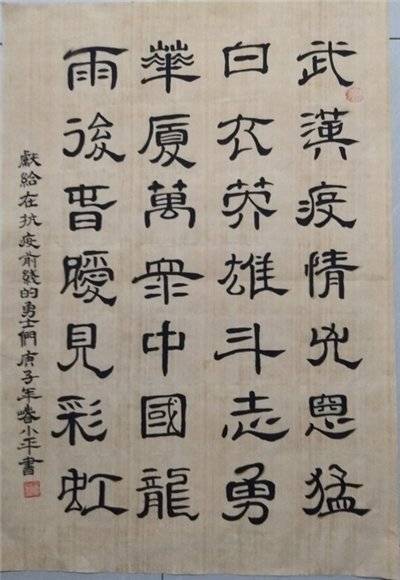 武漢疫情兇恩猛
白衣英雄斗志勇
華厦萬眾中國龍
雨後昔曖見彩虹
獻給在抗疫前綫的勇士們庚子年春小平書